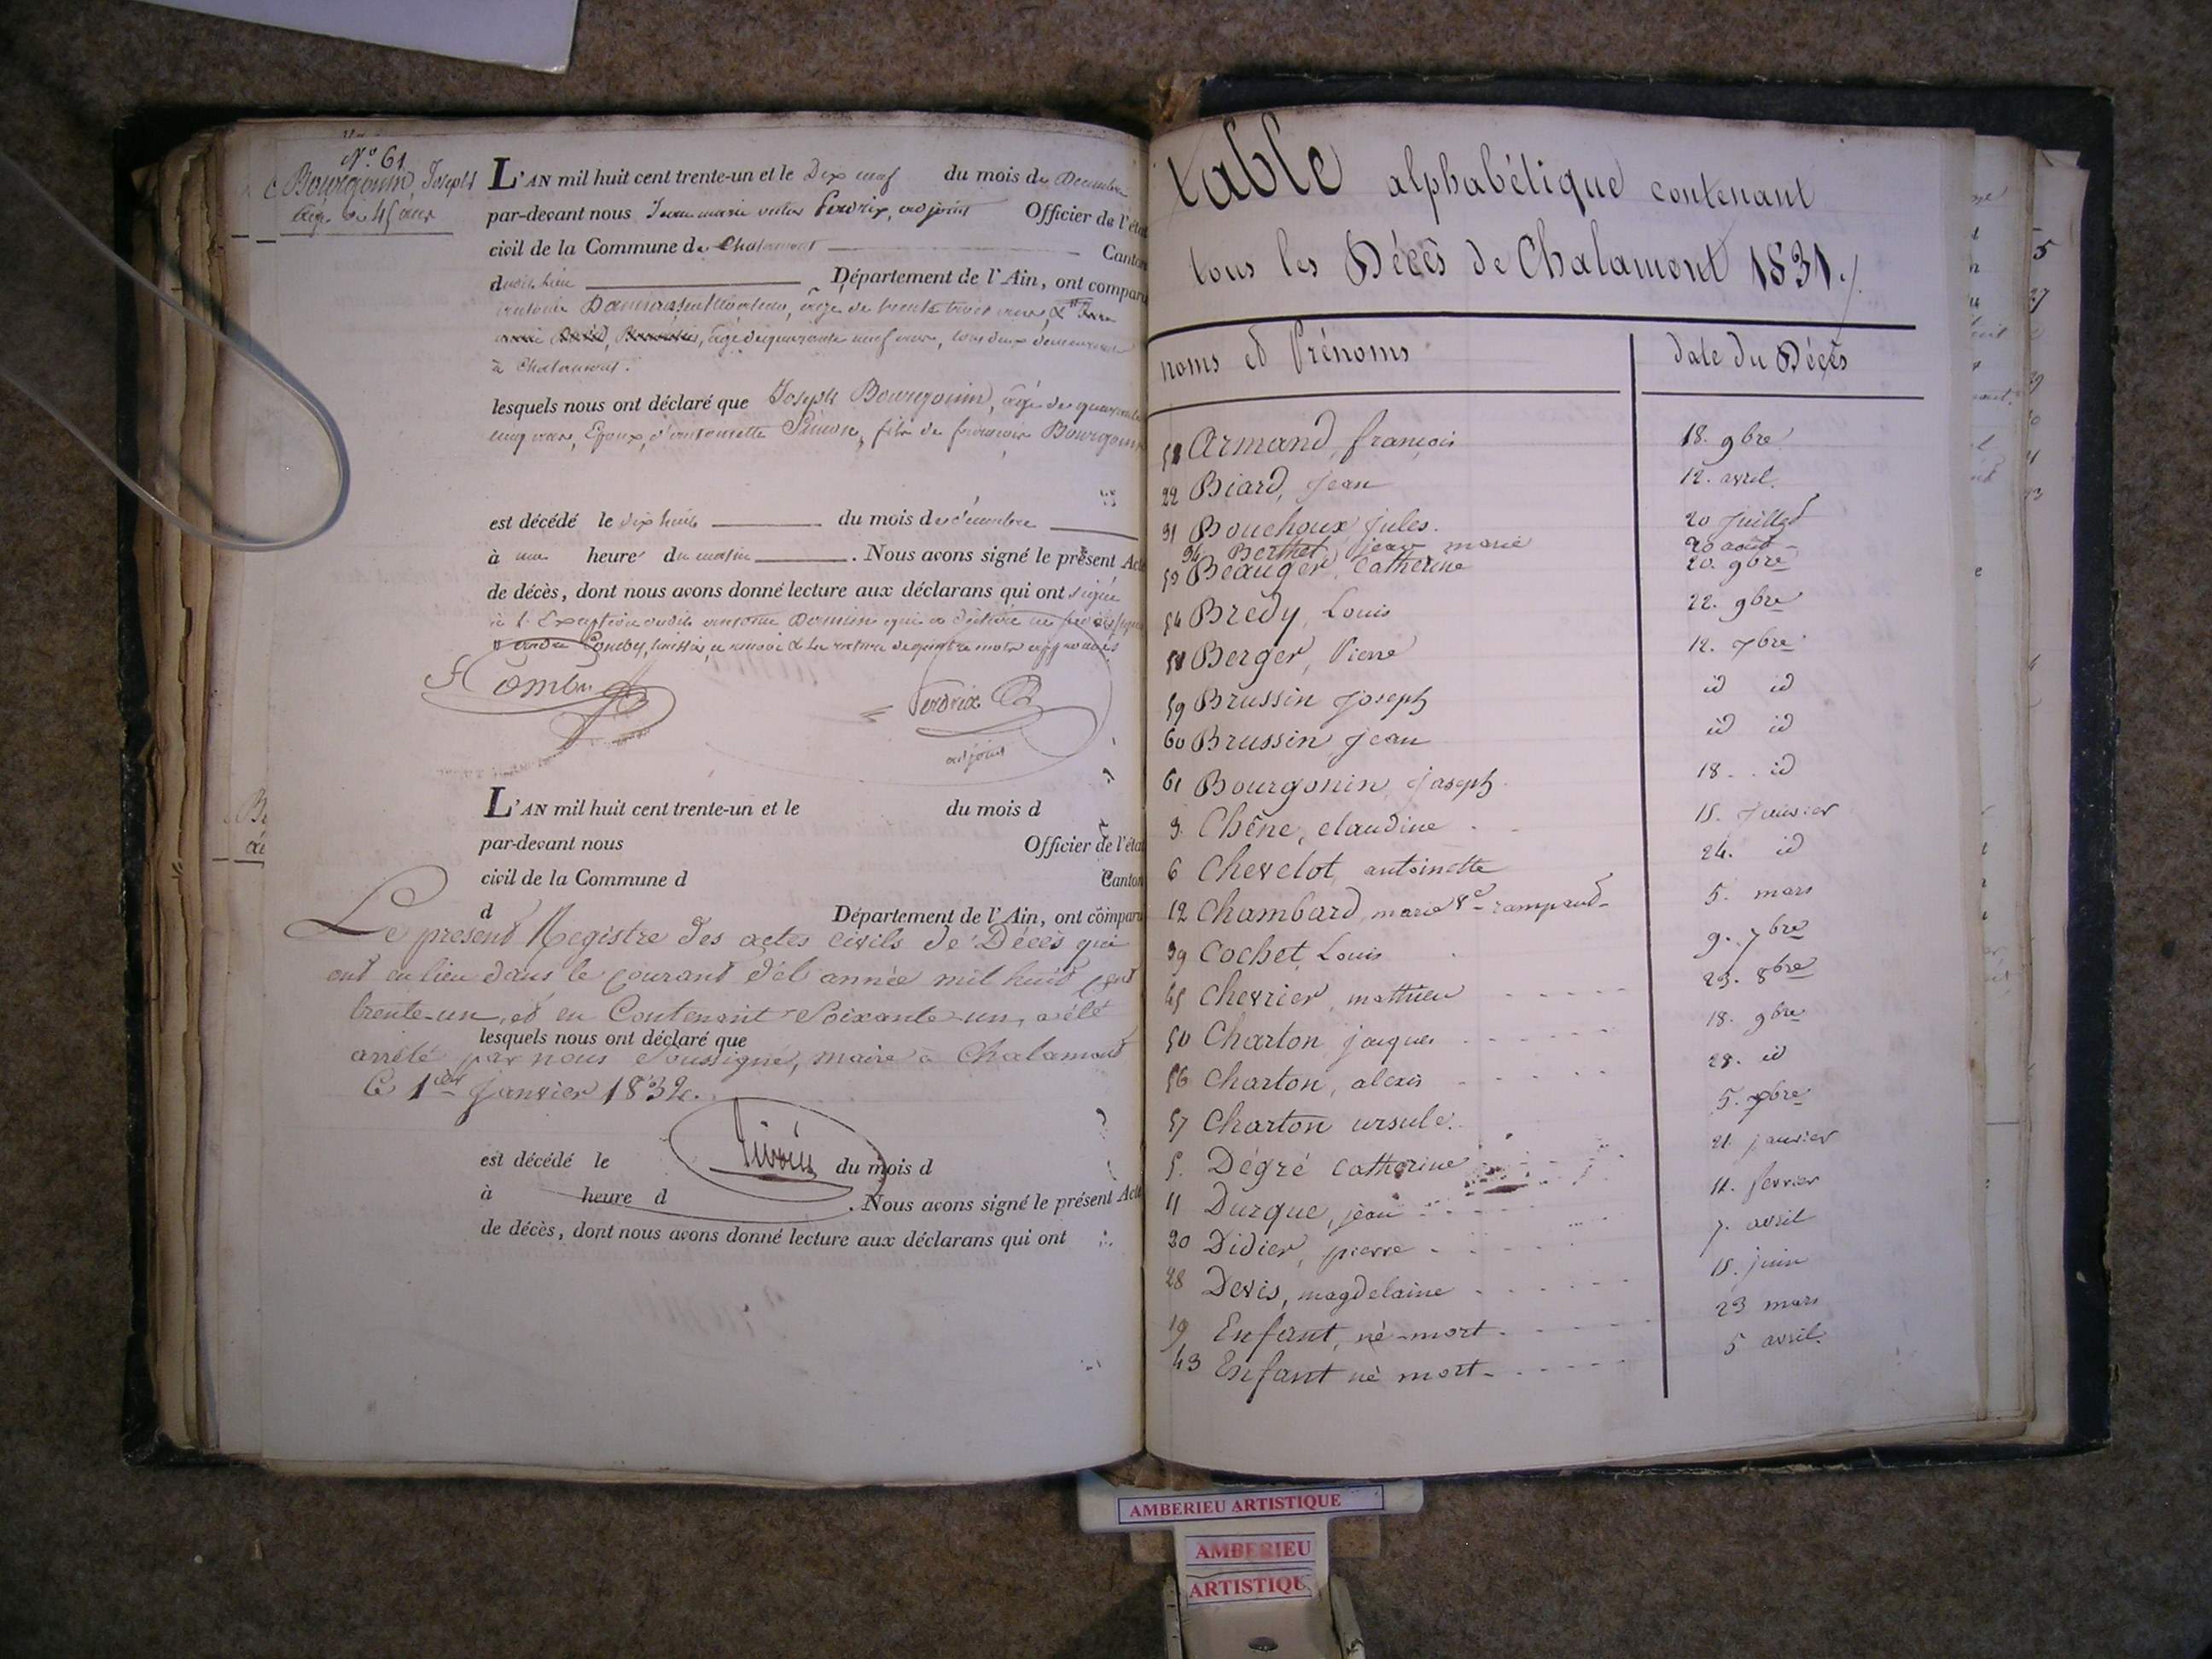 N° 61
Bourgonin, Joseph
âgé de 45 ans
L'AN mil huit cent trente-un et le Dix neuf du mois de Décembre
par-devant nous Jean marie victor Perdrix, adjoint Officier de l'état
civil de la Commune de Chalamont Canton
dudit lieu Département de l'Ain, ont comparu
antoine Damians, âgé de trente trois ans, &
âgé de quarante neuf ans, tous deux demeurant
à Chalamont.
lesquels nous ont déclaré que Joseph Bourgonin, âgé de quarante
cinq ans, Epoux d'antoinette Simon, fils de francois Bourgonin
est décédé le dix huit du mois de décembre
à une heure du matin . Nous avons signé le présent Acte
de décès, dont nous avons donné lecture aux déclarans qui ont signé
à l'Exception dudit antoine qui a déclaré ne
Comby, huissier
Comby
Perdrix
adjoint
L'AN mil huit cent trente-un et le du mois d
par-devant nous Officier de l'état
civil de la Commune d Canton
d Département de l'Ain, ont comparu
Le présent Registre des actes civils de Décès qui
ont eu lieu dans le courant de l'année mil huit cent
trente-un, et en Contenant Soixante-un, a été
lesquels nous ont déclaré que
arrêté par nous Soussigné, maire à Chalamont
Ce 1er Janvier 1832.
est décédé le du mois d
à heure d . Nous avons signé le présent Acte
de décès, dont nous avons donné lecture aux déclarans qui ont
table alphabétique contenant
tous les Décès de Chalamont 1831./
noms et Prénoms date du Décès
Armand, françois 18. 9bre
22 Biard, Jean 12. avril.
31 Bouchoux Jules. 20 Juillet
34 Berthet, jean marie 20 août
53 Beauger, Catherine 20. 9bre
54 Bredy, Louis 22. 9bre
58 Berger, Pierre 12. xbre
59 Brussin Joseph id id
60 Brussin Jean id id
61 Bourgonin, Joseph 18. id
3. Chêne, claudine 15. Janvier
6 Chevelot, antoinette 24. id
12 Chambard, marie Ve rampaud 5. mars
39 Cochet, Louis 9. 7bre
45 Chevrier, matthieu 23. 8bre
50 Charton, jacques 18. 9bre
56 Charton, alexis 28. id
57 Charton ursule. 5. xbre
5. Dégré Catherine 21. janvier
11 Durque, jean 11. fevrier
20 Didier, pierre 7. avril
28 Devis, magdelaine 15. juin
19 Enfant, né-mort. 23 mars
43 Enfant né mort 5 avril.
AMBERIEU ARTISTIQUE
AMBERIEU
ARTISTIQUE